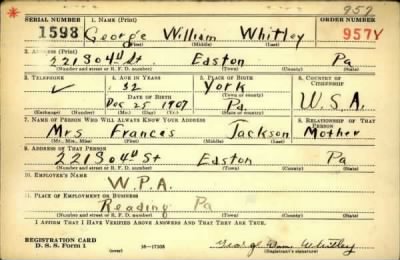 952
SERIAL NUMBER 1. NAME (Print) ORDER NUMBER
1598 George William Whitley 957Y
(First) (Middle) (Last)
2. ADDRESS (Print)
221 S 04th St. Easton Pa
(Number and street or R. F. D. number) (Town) (County) (State)
3. TELEPHONE 4. AGE IN YEARS 5. PLACE OF BIRTH 6. COUNTRY OF CITIZENSHIP
✓ 32 York
DATE OF BIRTH (Town or county)
Dec 25 1907 Pa. U.S.A.
(Exchange) (Number) (Mo.) (Day) (Yr.) (State or country)
7. NAME OF PERSON WHO WILL ALWAYS KNOW YOUR ADDRESS 8. RELATIONSHIP OF THAT PERSON
Mrs Frances Jackson Mother
(Mr., Mrs., Miss) (First) (Middle) (Last)
9. ADDRESS OF THAT PERSON
221 S 04th St Easton Pa
(Number and street or R. F. D. number) (Town) (County) (State)
10. EMPLOYER'S NAME
W.P.A.
11. PLACE OF EMPLOYMENT OR BUSINESS
Reading Pa
(Number and street or R. F. D. number) (Town) (County) (State)
I AFFIRM THAT I HAVE VERIFIED ABOVE ANSWERS AND THAT THEY ARE TRUE.
REGISTRATION CARD George Whitley
D. S. S. Form 1 (over) 16—17105 (Registrant's signature)